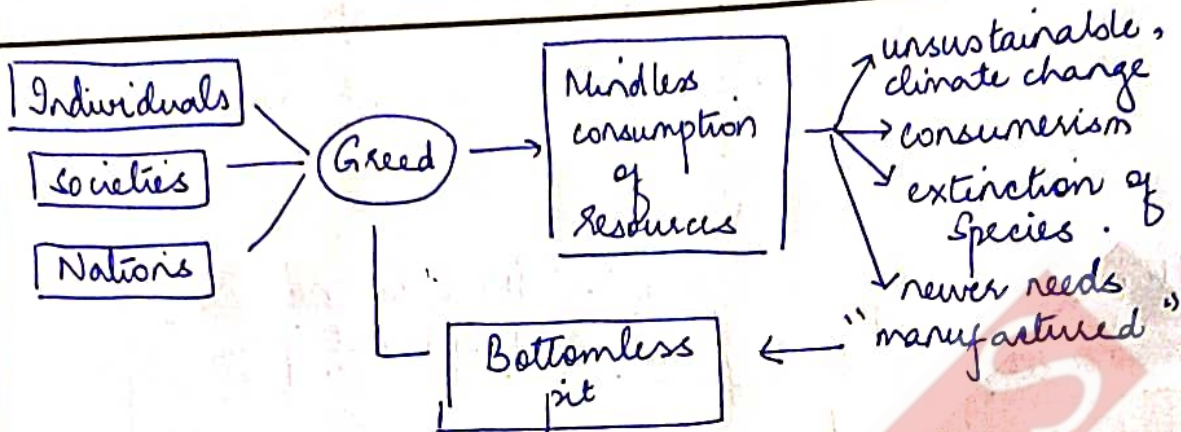 Individuals
Societies
Nations
Greed
Mindless
consumption
of
resources
unsustainable,
climate change
consumerism
extinction of
species.
newer needs
"manufactured"
Bottomless
pit